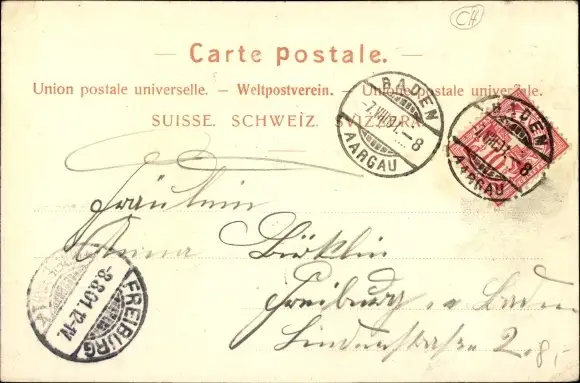 CH
— Carte postale. —
Union postale universelle. — Weltpostverein. — Unione postale universale.
SUISSE. SCHWEIZ. SVIZZERA.
BADEN
-7.VIII.01.-8
AARGAU
BADEN
-7.VIII.01.-8
AARGAU
Fräulein
Anna Bürklin
Freiburg i. Baden
Lindenstrasse 2.
FREIBURG
-8.8.01.12-1V.